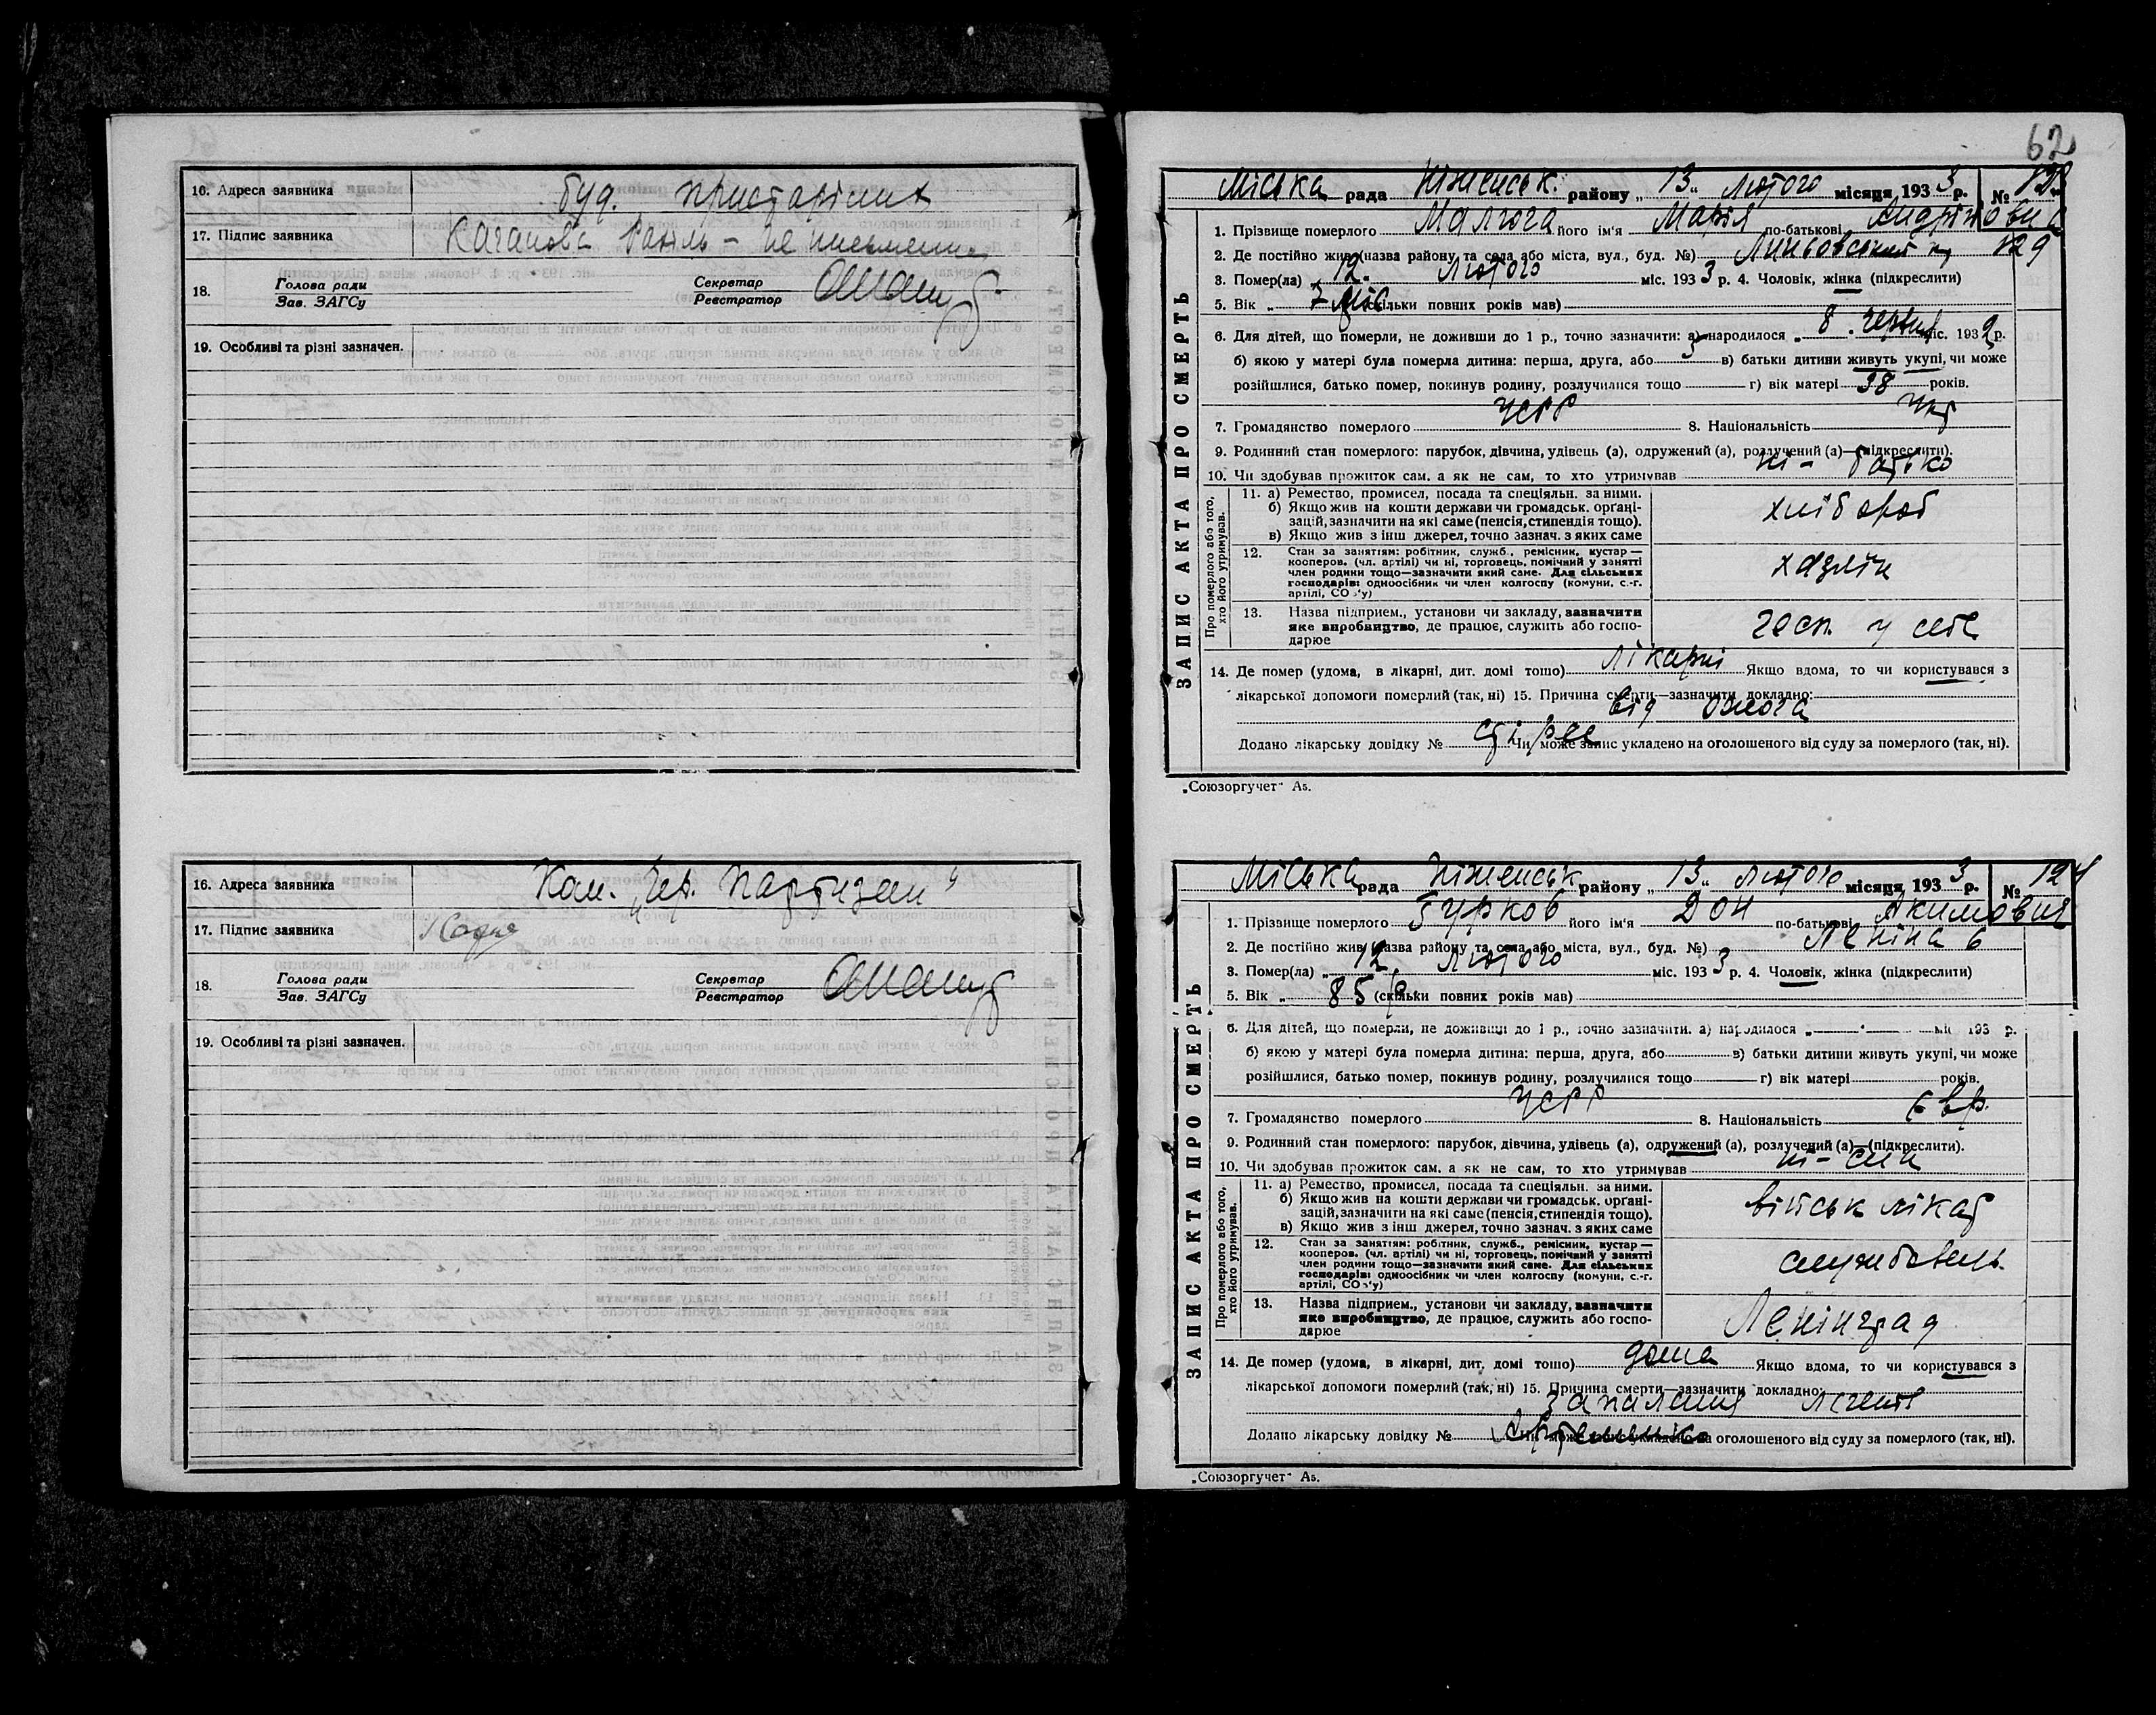 16. Адреса заявника буд. пристарілих
17. Підпис заявника Каганова Рахіль – не письменна
18. Голова ради
Зав. ЗАГСу
Секретар
Реєстратор
19. Особливі та різні зазначен.
16. Адреса заявника Ком. „Чер. Партизан“
17. Підпис заявника
18. Голова ради
Зав. ЗАГСу
Секретар
Реєстратор
19. Особливі та різні зазначен.
62
ЗАПИС АКТА ПРО СМЕРТЬ
Міська рада Ніженськ. району „13“ Лютого місяця 1933 р. №
1. Прізвище померлого Малюга його ім'я Марія по-батькові Андріновна
2. Де постійно жив (назва району та села або міста, вул., буд. №) 129
3. Помер(ла) „12“ Лютого міс. 1933 р. 4. Чоловік, жінка (підкреслити)
5. Вік „7 міс. (скільки повних років мав)
6. Для дітей, що померли, не доживши до 1 р., точно зазначити: а) народилося „8“ червня міс. 1932 р.
б) якою у матері була померла дитина: перша, друга, або 5 в) батьки дитини живуть укупі, чи може
розійшлися, батько помер, покинув родину, розлучилися тощо г) вік матері 38 років.
7. Громадянство померлого УСРР 8. Національність Укр
9. Родинний стан померлого: парубок, дівчина, удівець (а), одружений (а), розлучений (а)—(підкреслити).
10. Чи здобував прожиток сам, а як не сам, то хто утримував ні – батько
Про померлого або того, хто його утримував.
11. а) Ремество, промисел, посада та спеціяльн. за ними.
б) Якщо жив на кошти держави чи громадськ. організацій, зазначити на які саме (пенсія, стипендія тощо).
в) Якщо жив з інш джерел, точно зазнач. з яких саме
хлібороб
12. Стан за занятям: робітник, служб., ремісник, кустар—
кооперов. (чл. артілі) чи ні, торговець, помічний у занятті
член родини тощо—зазначити який саме. Для сільських
господарів: одноосібник чи член колгоспу (комуни, с.-г.
артілі, СОЗ'у)
хазяїн
13. Назва підприєм., установи чи закладу, зазначити
яке виробництво, де працює, служить або господарює
госп. у себе
14. Де помер (удома, в лікарні, дит. домі тощо) лікарні Якщо вдома, то чи користувався з
лікарської допомоги померлий (так, ні) 15. Причина смерти—зазначити докладно:
від ожога
Додано лікарську довідку № Чи може запис укладено на оголошеного від суду за померлого (так, ні).
„Союзоргучет“ А5.
ЗАПИС АКТА ПРО СМЕРТЬ
Міська рада Ніженськ району „13“ Лютого місяця 1933 р. № 124
1. Прізвище померлого Гурков його ім'я Дон по-батькові Якимович
2. Де постійно жив (назва району та села або міста, вул., буд. №) Леніна 6
3. Помер(ла) „12“ Лютого міс. 1933 р. 4. Чоловік, жінка (підкреслити)
5. Вік „85 р. (скільки повних років мав)
6. Для дітей, що померли, не доживши до 1 р., точно зазначити: а) народилося „ міс 193 р.
б) якою у матері була померла дитина: перша, друга, або в) батьки дитини живуть укупі, чи може
розійшлися, батько помер, покинув родину, розлучилися тощо г) вік матері років.
7. Громадянство померлого УСРР 8. Національність Євр.
9. Родинний стан померлого: парубок, дівчина, удівець (а), одружений (а), розлучений (а)—(підкреслити).
10. Чи здобував прожиток сам, а як не сам, то хто утримував ні – син
Про померлого або того, хто його утримував.
11. а) Ремество, промисел, посада та спеціяльн. за ними.
б) Якщо жив на кошти держави чи громадськ. організацій, зазначити на які саме (пенсія, стипендія тощо).
в) Якщо жив з інш джерел, точно зазнач. з яких саме
військ лікар
12. Стан за занятям: робітник, служб., ремісник, кустар—
кооперов. (чл. артілі) чи ні, торговець, помічний у занятті
член родини тощо—зазначити який саме. Для сільських
господарів: одноосібник чи член колгоспу (комуни, с.-г.
артілі, СОЗ'у)
службовець
13. Назва підприєм., установи чи закладу, зазначити
яке виробництво, де працює, служить або господарює
Ленінград
14. Де помер (удома, в лікарні, дит. домі тошо) дома Якщо вдома, то чи користувався з
лікарської допомоги померлий (так, ні) 15. Причина смерти—зазначити докладно:
Запалення легенів
Додано лікарську довідку № Чи може запис укладено на оголошеного від суду за померлого (так, ні).
„Союзоргучет“ А5.